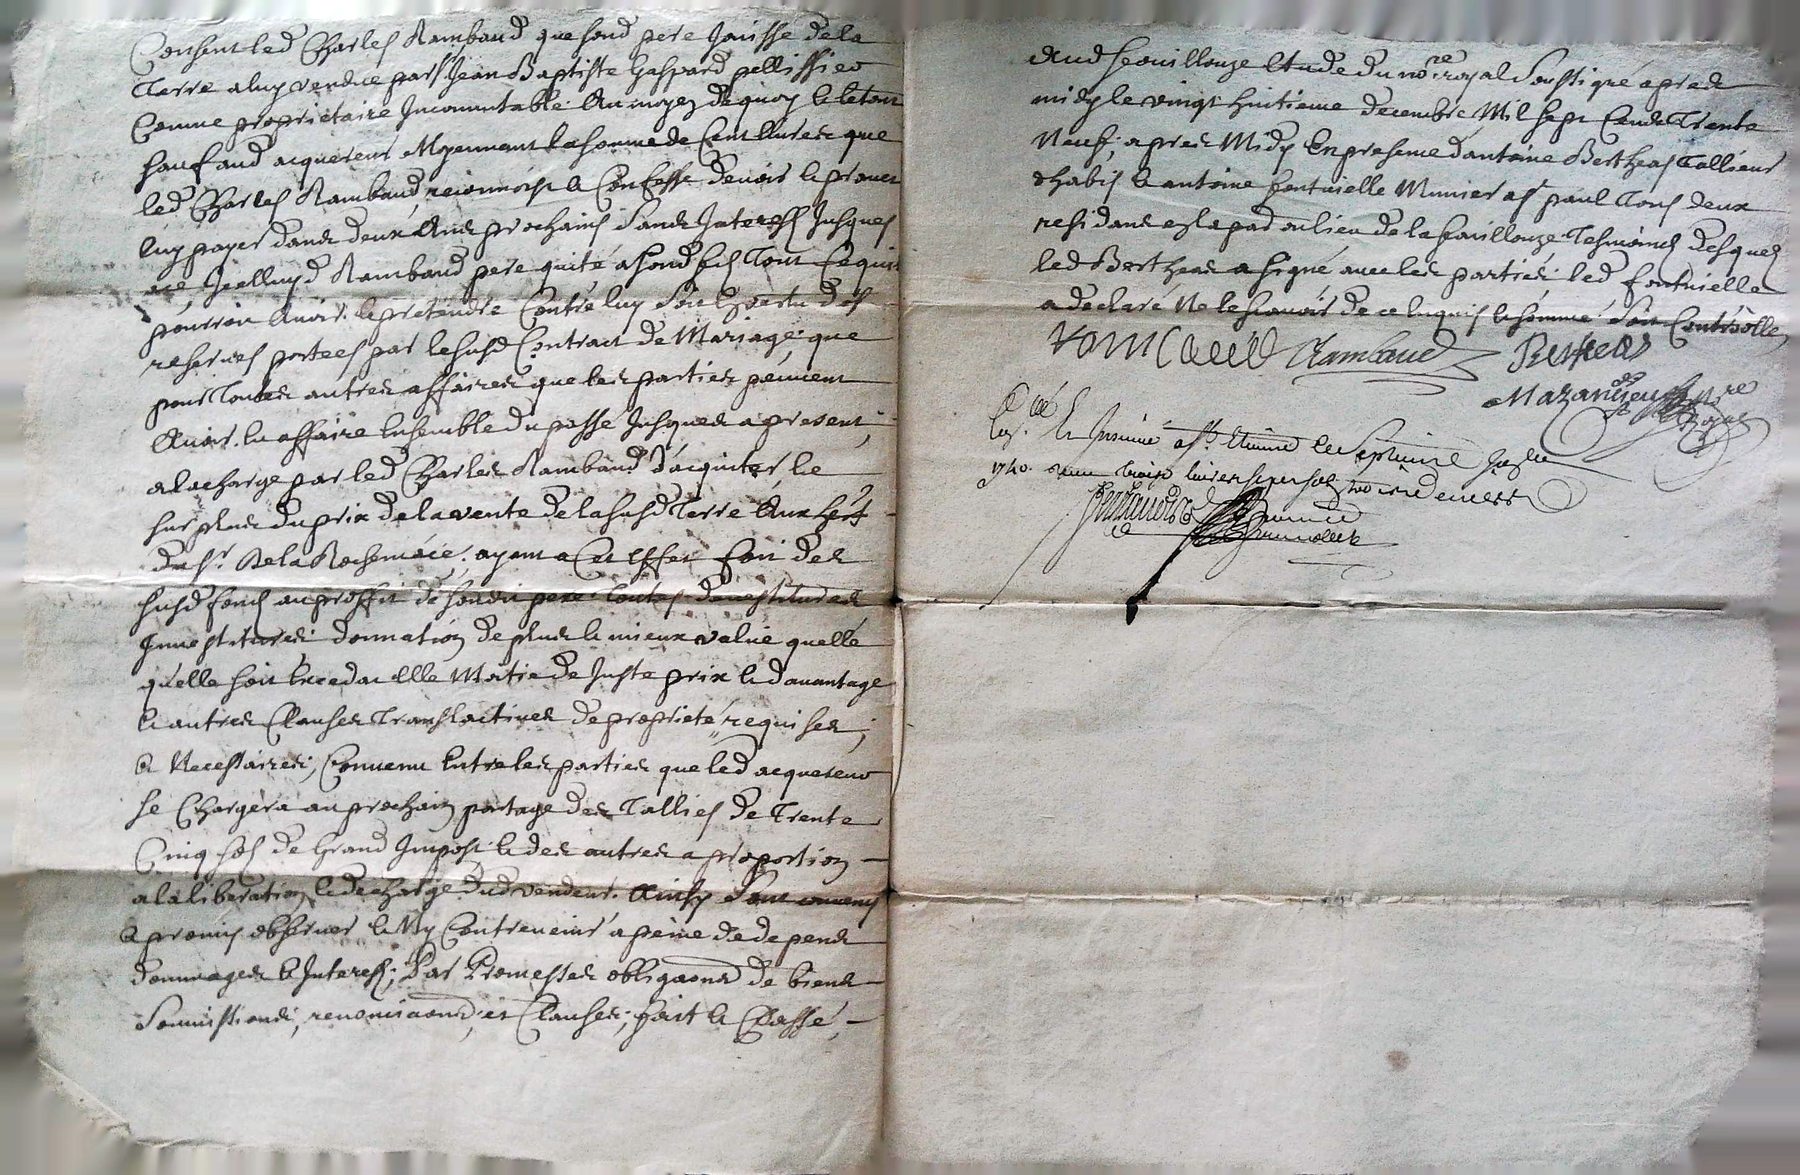 Consent led Charles Rambaud que sond pere Jouisse de la
Terre a luy vendue par sr Jean Baptiste Gaspard pellissier
Comme proprietaire Incomutable Au moyen de quoy & le tout
sauf aud acquereur Moyennant la somme de Cent livres que
led Charles Rambaud reconnoist & Confesse devoir & promet
luy payer dans deux Ans prochains Sans Interest Jusques
Icelluy d Rambaud pere quité a sond fils Tout ce quil
pourroit Avoir & pretendre Contre luy Soit En vertu des
reserves portées par le susd Contract de Mariage que
pour Toutes autres affaires que les parties peuvent
Avoir eu affaire Ensemble du passé Jusques a present,
a la charge par led Charles Rambaud d'acquitter le
surplus du prix de la vente de la susd Terre Aux
du sr De la Rochenéere, ayant a Cet Effet fait des
susd fonds au proffit de sondit pere Toutes devestitures
Investitures donnation de plus & mieux value quelle
quelle soit Exceda elle Moitie de Juste prix & davantage
& autres Clauses Translactives de proprieté requises,
& Necessaires, Convenu Entre les parties que led acquereur
se Chargera au prochain partage des Tallies de Trente
Cinq sols de Grand Impost & des autres a proportion
a la liberation & décharge dud vendeur. Ainsy Sont convenus
& promis observer & Ny Contrevenir a peine de depens
dommages & Interest, Par Promesses obligaons de biens
Soumissions, renonciaons, et Clauses, fait & Passé,
Aud feouillouze Etude du nore royal Soussigné apres
midy le vingt huitieme decembre Mil sept Cents Trente
Neuf, apres Midy En presence d'antoine Bertheas Tallieur
d'habis & antoine fontvielle Munier a st paul Tous deux
residans en la pad ou lieu de la fouillouze Tesmoins desquels
led Bertheas a signé avec les parties led fontvielle
a declaré Ne le scavoir de ce Enquis & sommé Soit Controollé
rambaud Rambaud Berteas
Mazandieu nre Royal
Collé
Et Insinué a st Etienne le Septieme Jaer
1740. Reçu Trois livres